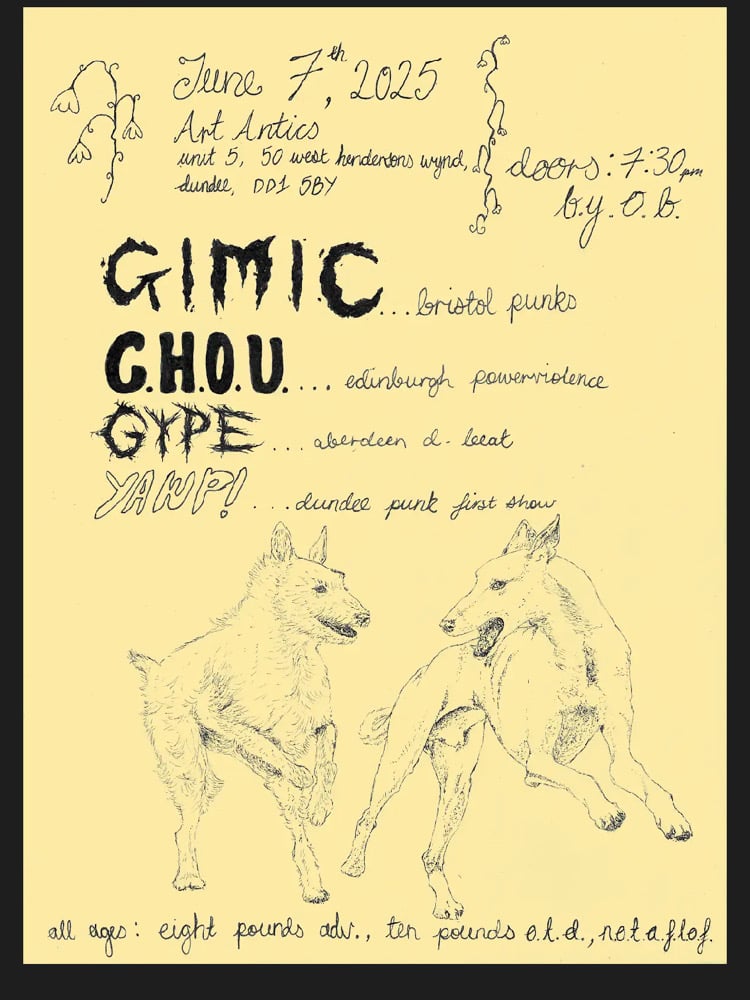 June 7th, 2025
Art Antics
unit 5, 50 west hendersons wynd,
dundee, DD1 5BY
doors: 7:30pm
b.y.o.b.
GIMIC...bristol punks
C.H.O.U.... edinburgh powerviolence
GYPE ...aberdeen d-beat
YAWP! ...dundee punk first show
all ages: eight pounds adv., ten pounds o.t.d., n.o.t.a.f.l.o.f.